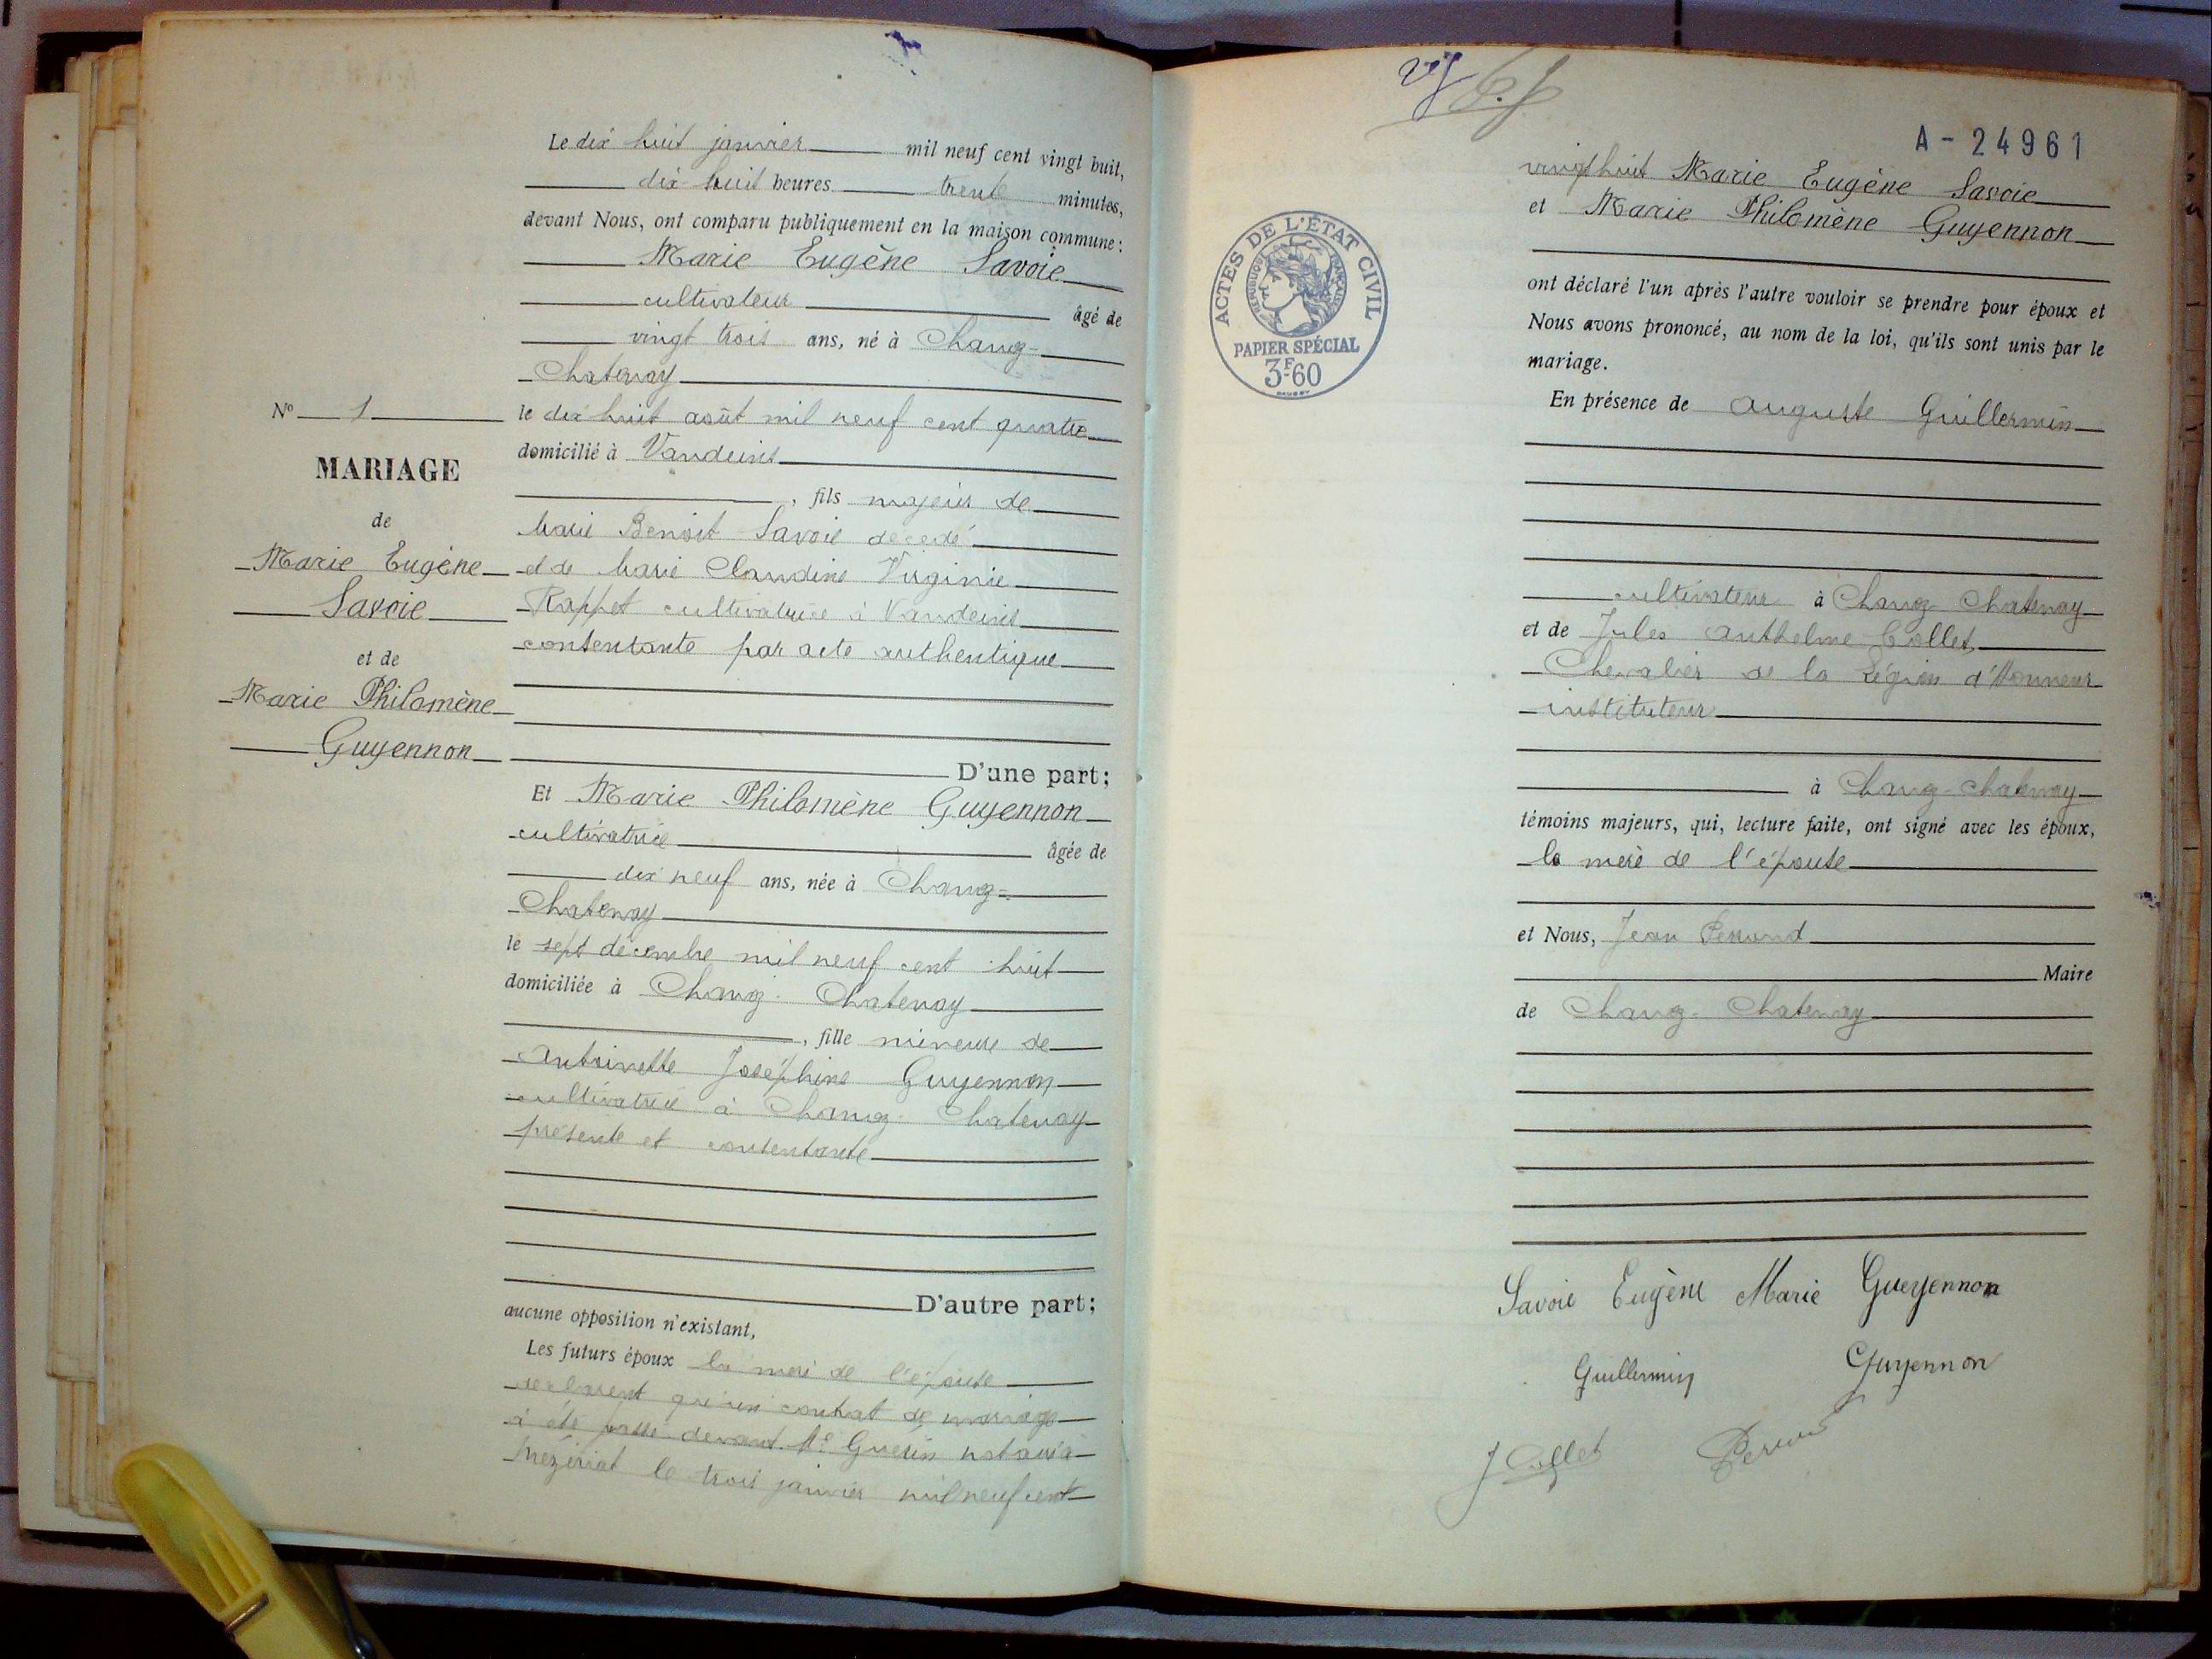 Le dix huit janvier mil neuf cent vingt huit,
dix huit heures trente minutes,
devant Nous, ont comparu publiquement en la maison commune :
Marie Eugène Savoie
cultivateur âgé de
vingt trois ans, né à Chanoz-
Chatenay
le dix huit août mil neuf cent quatre
domicilié à Vandeins
, fils majeur de
Marie Benoit Savoie décédé
et de Marie Claudine Virginie
Rappet cultivatrice à Vandeins
consentante par acte authentique
D'une part ;
Et Marie Philomène Guyennon
cultivatrice âgée de
dix neuf ans, née à Chanoz-
Chatenay
le sept décembre mil neuf cent huit
domiciliée à Chanoz-Chatenay
, fille mineure de
Antoinette Joséphine Guyennon
cultivatrice à Chanoz-Chatenay
présente et consentante
D'autre part ;
aucune opposition n'existant,
Les futurs époux la mère de l'épouse
déclarent qu'un contrat de mariage
a été passé devant Me Guerin notaire à
Mézériat le trois janvier mil neuf cent
No 1
MARIAGE
de
Marie Eugène
Savoie
et de
Marie Philomène
Guyennon
A-24961
ACTES DE L'ÉTAT CIVIL
RÉPUBLIQUE FRANÇAISE
PAPIER SPÉCIAL
3F60
vingt huit Marie Eugène Savoie
et Marie Philomène Guyennon
ont déclaré l'un après l'autre vouloir se prendre pour époux et
Nous avons prononcé, au nom de la loi, qu'ils sont unis par le
mariage.
En présence de Auguste Guillermin
cultivateur à Chanoz-Chatenay
et de Jules Anthelme Collet,
Chevalier de la Légion d'Honneur
instituteur
à Chanoz-Chatenay
témoins majeurs, qui, lecture faite, ont signé avec les époux,
la mère de l'épouse
et Nous, Jean Perraud
Maire
de Chanoz-Chatenay
Savoie Eugène Marie Gueyennon
Guillermin Guyennon
J Collet Perraud